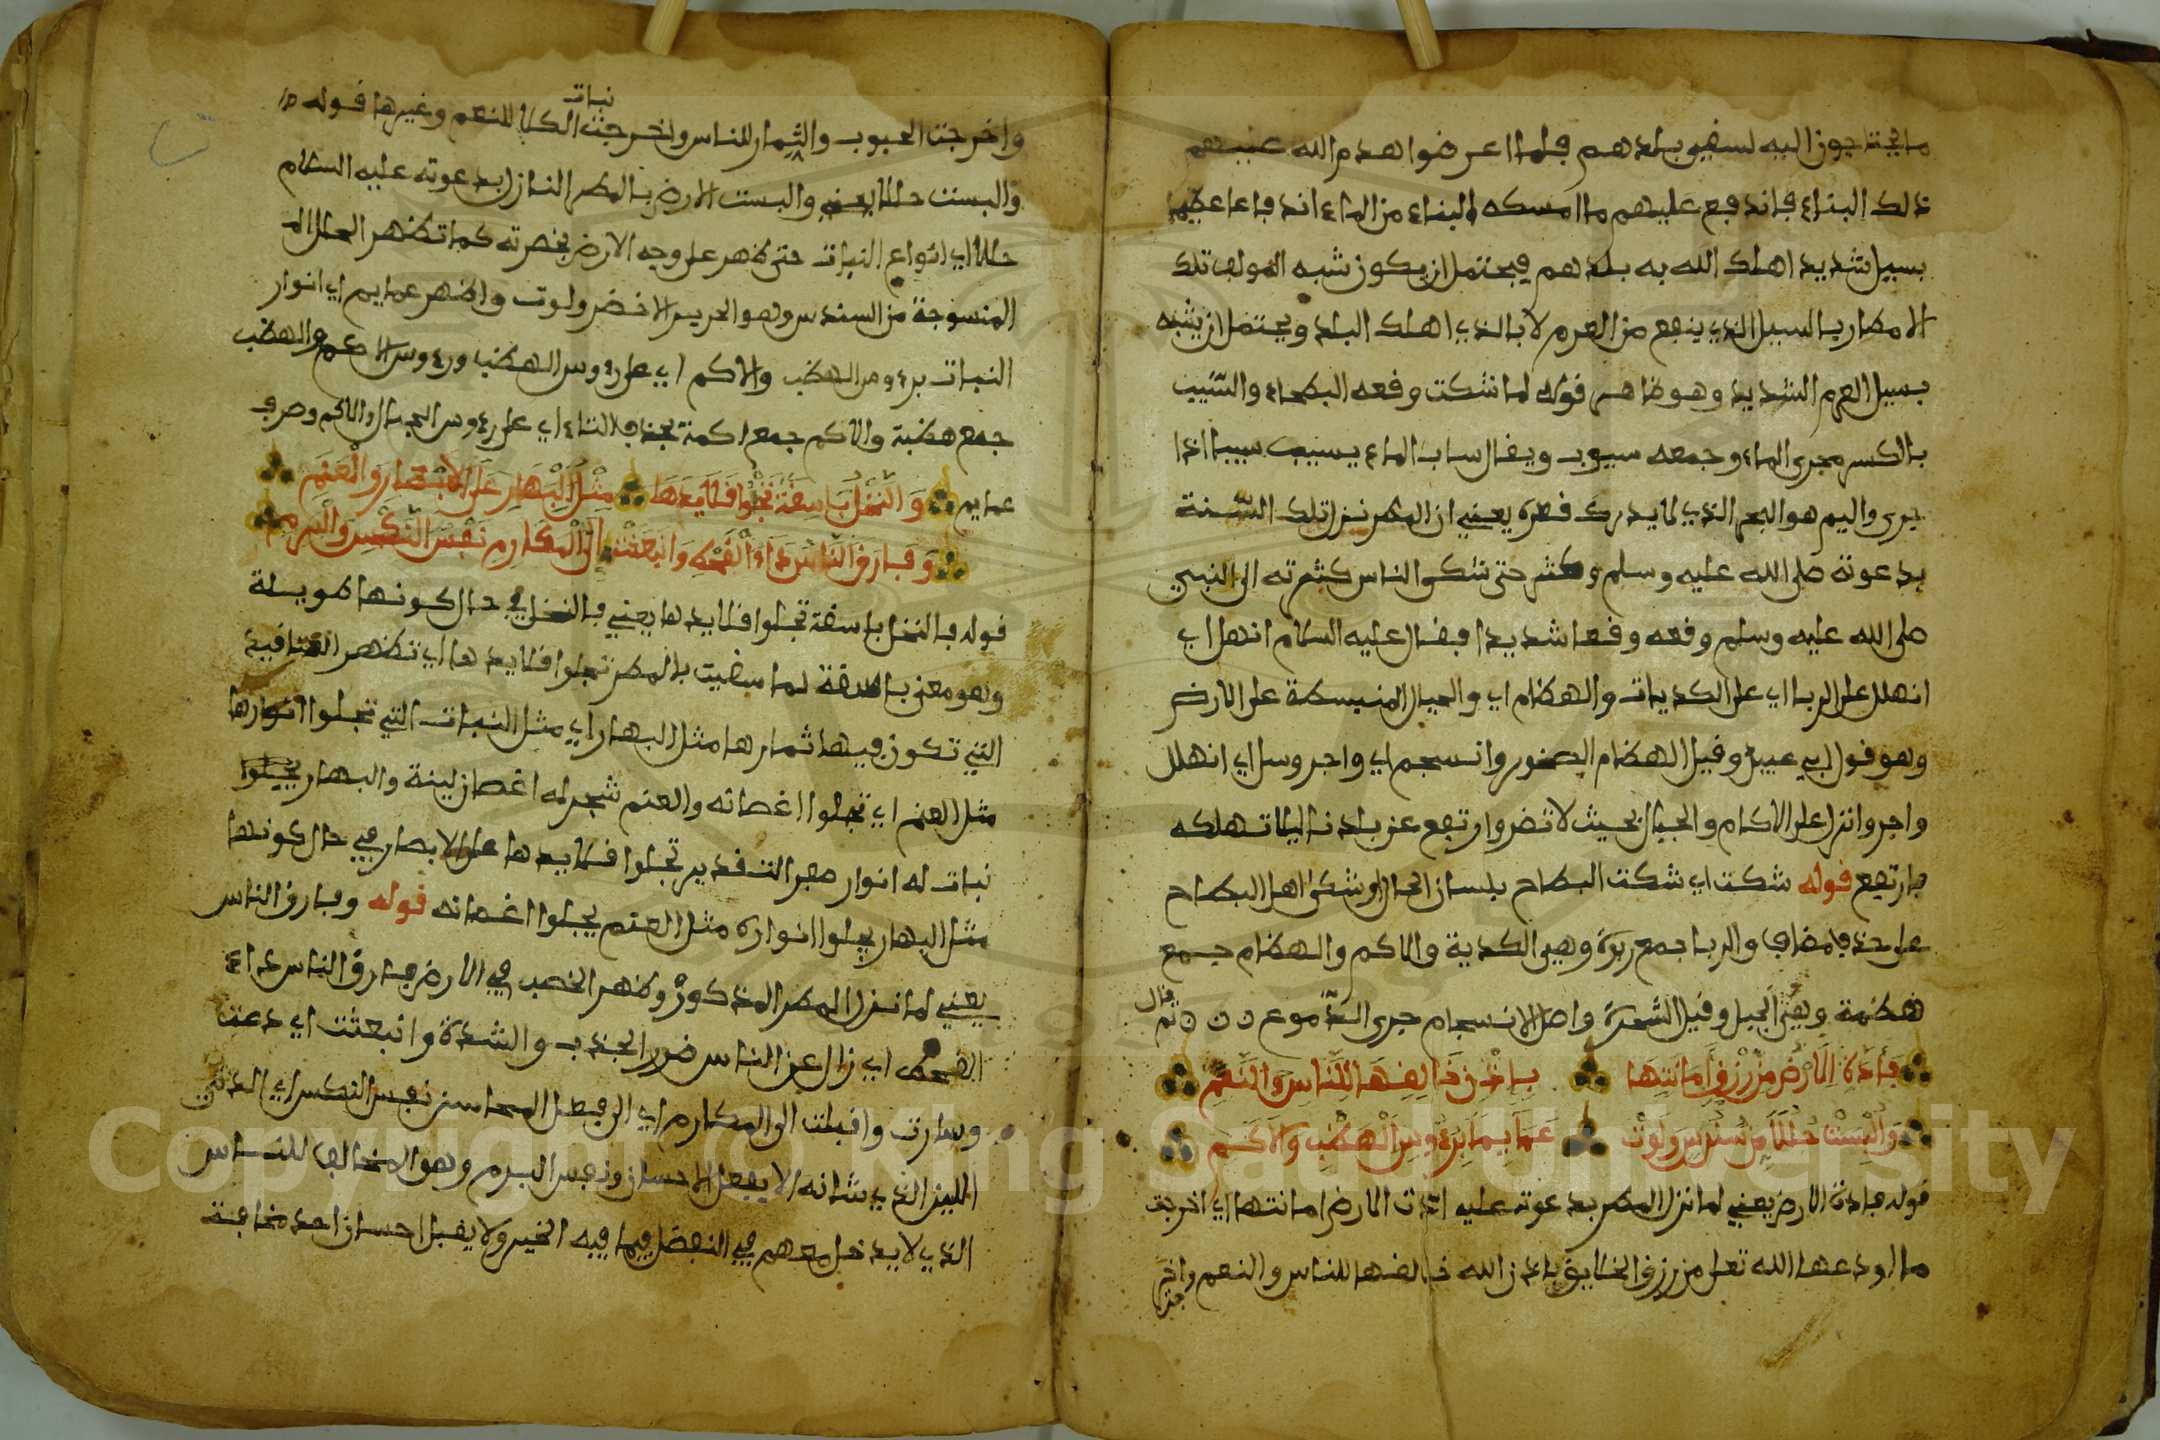 ما يحتاجون اليه لسقي بلدهم فلما اعرضوا هدم الله عنهم
ذلك البناء فاندفع عليهم ما امسكه البناء من الماء اندفاعا عظيما
بسيل شديد اهلك الله به بلدهم فيحتمل ان يكون شبه المولف تلك
الامطار بالسيل الذي ينفع من العرم لا بالذي اهلك البلد ويحتمل ان يشبه
بسيل العرم الشديد وهو ظاهر قوله لما شكت وقعه البطحاء والسيب
بالكسر مجرى الماء وجمعه سيوب ويقال ساب الماء يسيب سيبا اذا
جرى واليم هو البحر الذي لا يدرك قعره يعني ان المطر نزل تلك السنة
بدعوته صلى الله عليه وسلم وكثر حتى شكى الناس كثرته الى النبي
صلى الله عليه وسلم وقعه وقعا شديدا فقال عليه السلام انهل اي
انهلل على الربا اي على الكديات والهظام اي والجبال المنبسطة على الارض
وهو قول ابي عبيد وقيل الهظام الصخور وانسجم اي واجر وسل اي انهلل
واجر وانزل على الاكام والجبال بحيث لا تضر وارتفع عن بلدنا ليلا تهلكه
فارتفع قوله شكت اي شكت البطاح بلسان الحال او شكى اهل البطاح
على حذف مضاف والربا جمع ربوة وهي الكدية والاكم والهظام جمع
هظمة وهي الجبل وقيل الشعرة واصل الانسجام جرى الدموع ثم قال
فأدت الارض من رزق امانتها باذن خالقها للناس والنعم
وألبست حللا من سندس ولوت عمايما برءوس الهظب والاكم
قوله فادت الارض يعني لما نزل المطر بدعوته عليه ادت الارض امانتها اي اخرجت
ما اودعها الله تعلى من رزق الخلايق باذن الله خالقها للناس والنعم واخر
جت
نبات
واخرجت الحبوب والثمار للناس واخرجت الكلا للنعم وغيرها قوله
والبست حللا يعني والبست الارض بالمطر النازل بدعوته عليه السلام
حللا اي انواع النبات حتى ظهر على وجه الارض بخضرته كما تظهر الحلل
المنسوجة من السندس وهو الحرير الاخضر ولوت واظهر عمايم اي انوار
النبات برءوس الهظب والاكم اي على رءوس الهظب ورءوس الاكم والهظب
جمع هظبة والاكم جمع اكمة بحذف التاء اي على رءوس الجبال والاكم وصرف
عمايم والنخل باسقة تجلوا قلايدها مثل البهار على الابصار والعنم
وفارق الناس داء القحط وانبعثت الى المكارم نفس النكس والبرم
قوله فالنخل باسقة تجلوا قلايدها يعني فالنخل في حال كونها طويلة
وهو معنى باسقة لما سقيت بالمطر تجلوا قلايدها اي تظهر العناقيد
التي تكون فيها ثمارها مثل البهار اي مثل النبات التي تجلوا انوارها
مثل العنم اي تجلوا اغصانه والعنم شجر له اغصان لينة والبهار
نبات له انوار صفر التقدير تجلوا قلايدها على الابصار في حال كونها
مثل البهار يجلوا انواره مثل العنم يجلوا اغصانه قوله وفارق الناس
يعني لما نزل المطر المذكور وظهر الخصب في الارض فارق الناس داء
القحط اي زال عن الناس ضرر الجذب والشدة وانبعثت اي دعت
وسارت واقبلت الى المكارم اي الى فعل المحاسن نفس النكس اي الدني
اللين الذي شانه الا يفعل الاحسان ونفس البرم وهو المخالف للناس
الذي لا يدخل معهم في التفضل فيما فيه الخير ولا يقبل احسان احد مخافة
Copyright © King Saud University